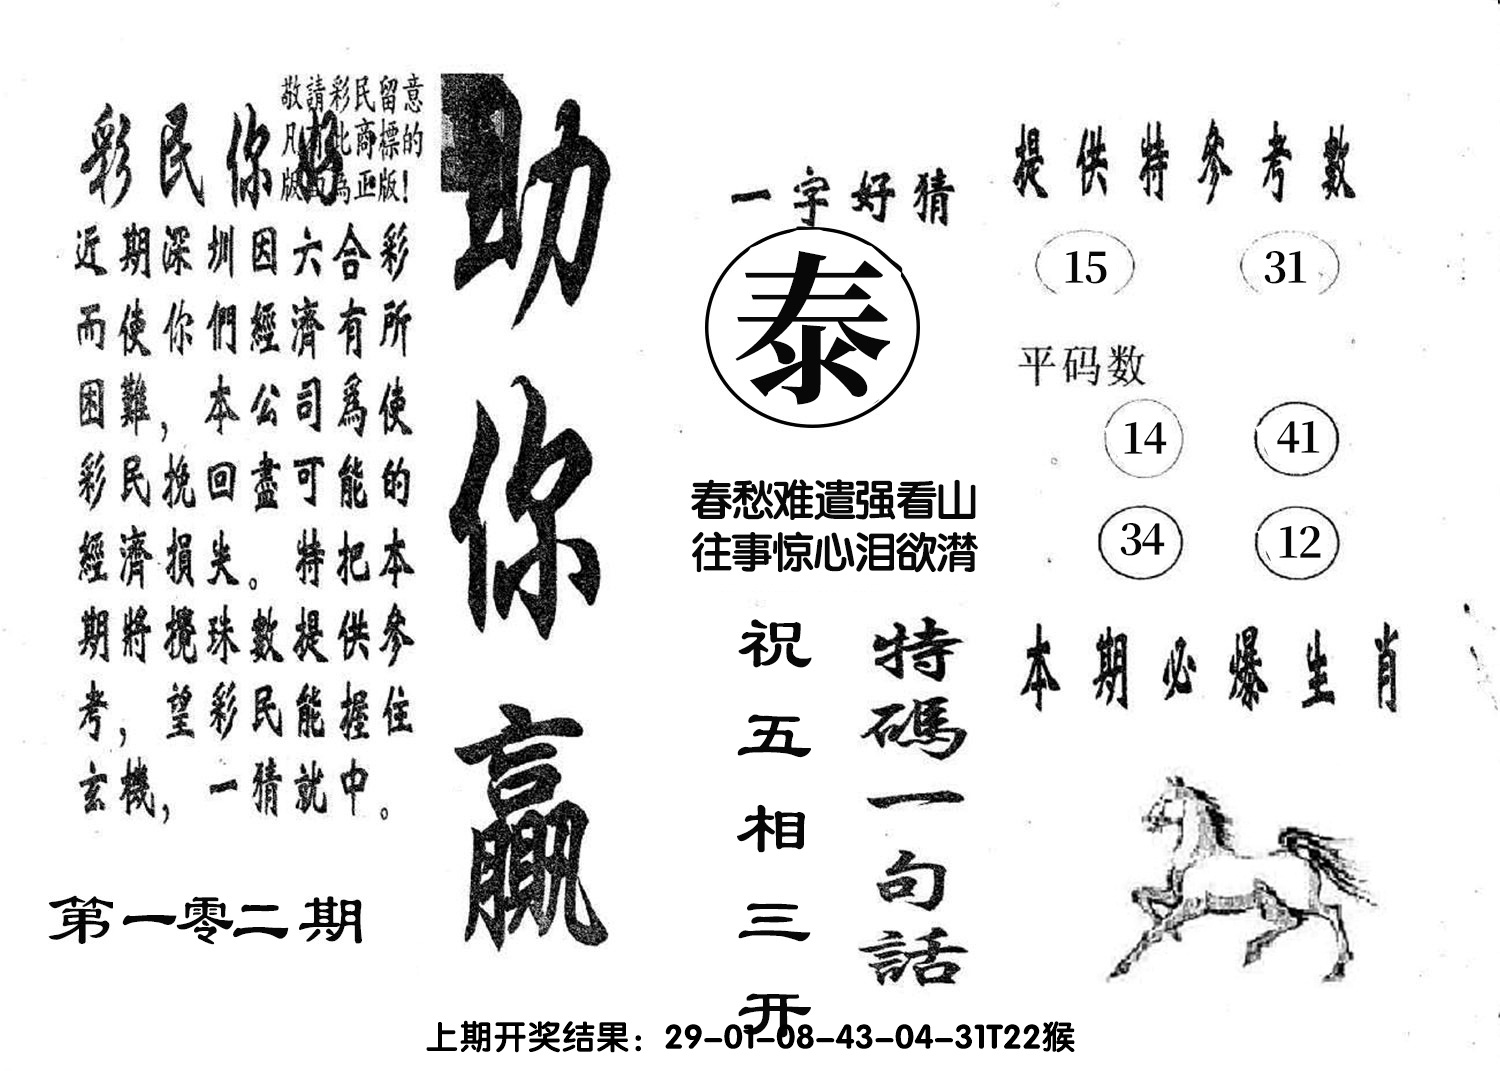 敬請彩民留意
凡有此商標的
版面為正版!
彩民你好
近期深圳因六合彩
而使你們經濟有所
困難，本公司爲使
彩民挽回盡可能的
經濟損失。特把本
期將攪珠數提供參
考，望彩民能握住
玄機，一猜就中。
第一零二期
助你贏
一字好猜
泰
春愁难遣强看山
往事惊心泪欲潸
特碼一句話
祝五相三开
提供特參考數
15 31
平码数
14 41
34 12
本期必爆生肖
上期开奖结果：29-01-08-43-04-31T22猴